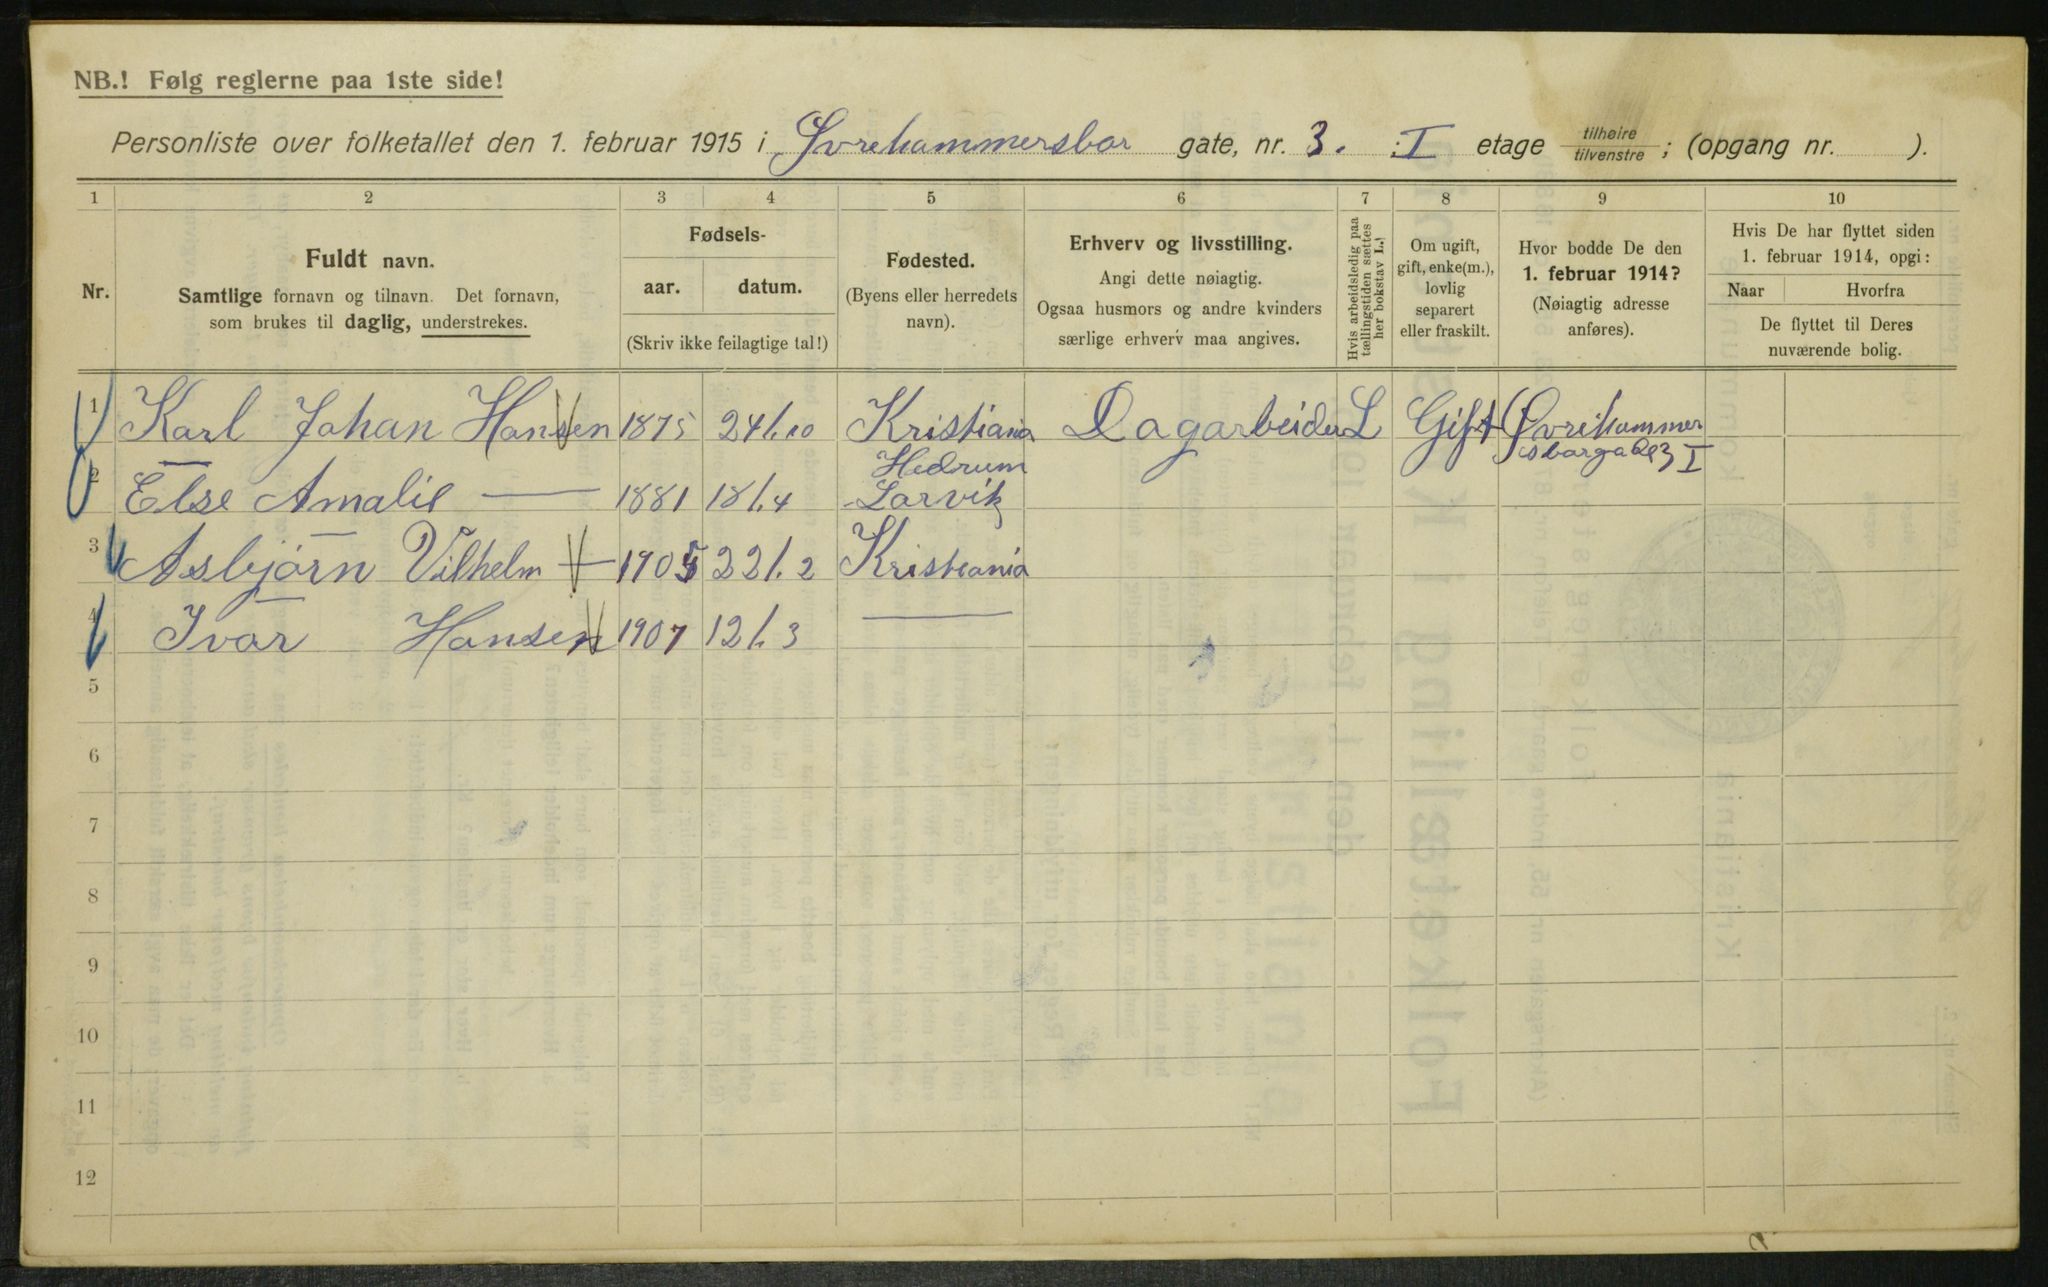 NB.! Følg reglerne paa 1ste side!
Personliste over folketallet den 1. februar 1915 i Øvrehammersbor gate, nr. 3. I etage tilhøire / tilvenstre; (opgang nr. ).
1 2 3 4 5 6 7 8 9 10
Nr.
Fuldt navn.
Samtlige fornavn og tilnavn. Det fornavn,
som brukes til daglig, understrekes.
Fødsels-
aar. datum.
(Skriv ikke feilagtige tal!)
Fødested.
(Byens eller herredets
navn).
Erhverv og livsstilling.
Angi dette nøiagtig.
Ogsaa husmors og andre kvinders
særlige erhverv maa angives.
Hvis arbeidsledig paa
tællingstiden sættes
her bokstav L.!
Om ugift,
gift, enke(m.),
lovlig
separert
eller fraskilt.
Hvor bodde De den
1. februar 1914?
(Nøiagtig adresse
anføres).
Hvis De har flyttet siden
1. februar 1914, opgi:
Naar Hvorfra
De flyttet til Deres
nuværende bolig.
1 Karl Johan Hansen 1875 24/.10 Kristiania Dagarbeider L Gift Øvrehammer
sborgade 3 I
2 Else Amalie — 1881 18/.4 Hedrum
Larvik
3 Asbjørn Vilhelm — 1905 22/.2 Kristiania
4 Ivar Hansen 1907 12/.3 —
5
6
7
8
9
10
11
12